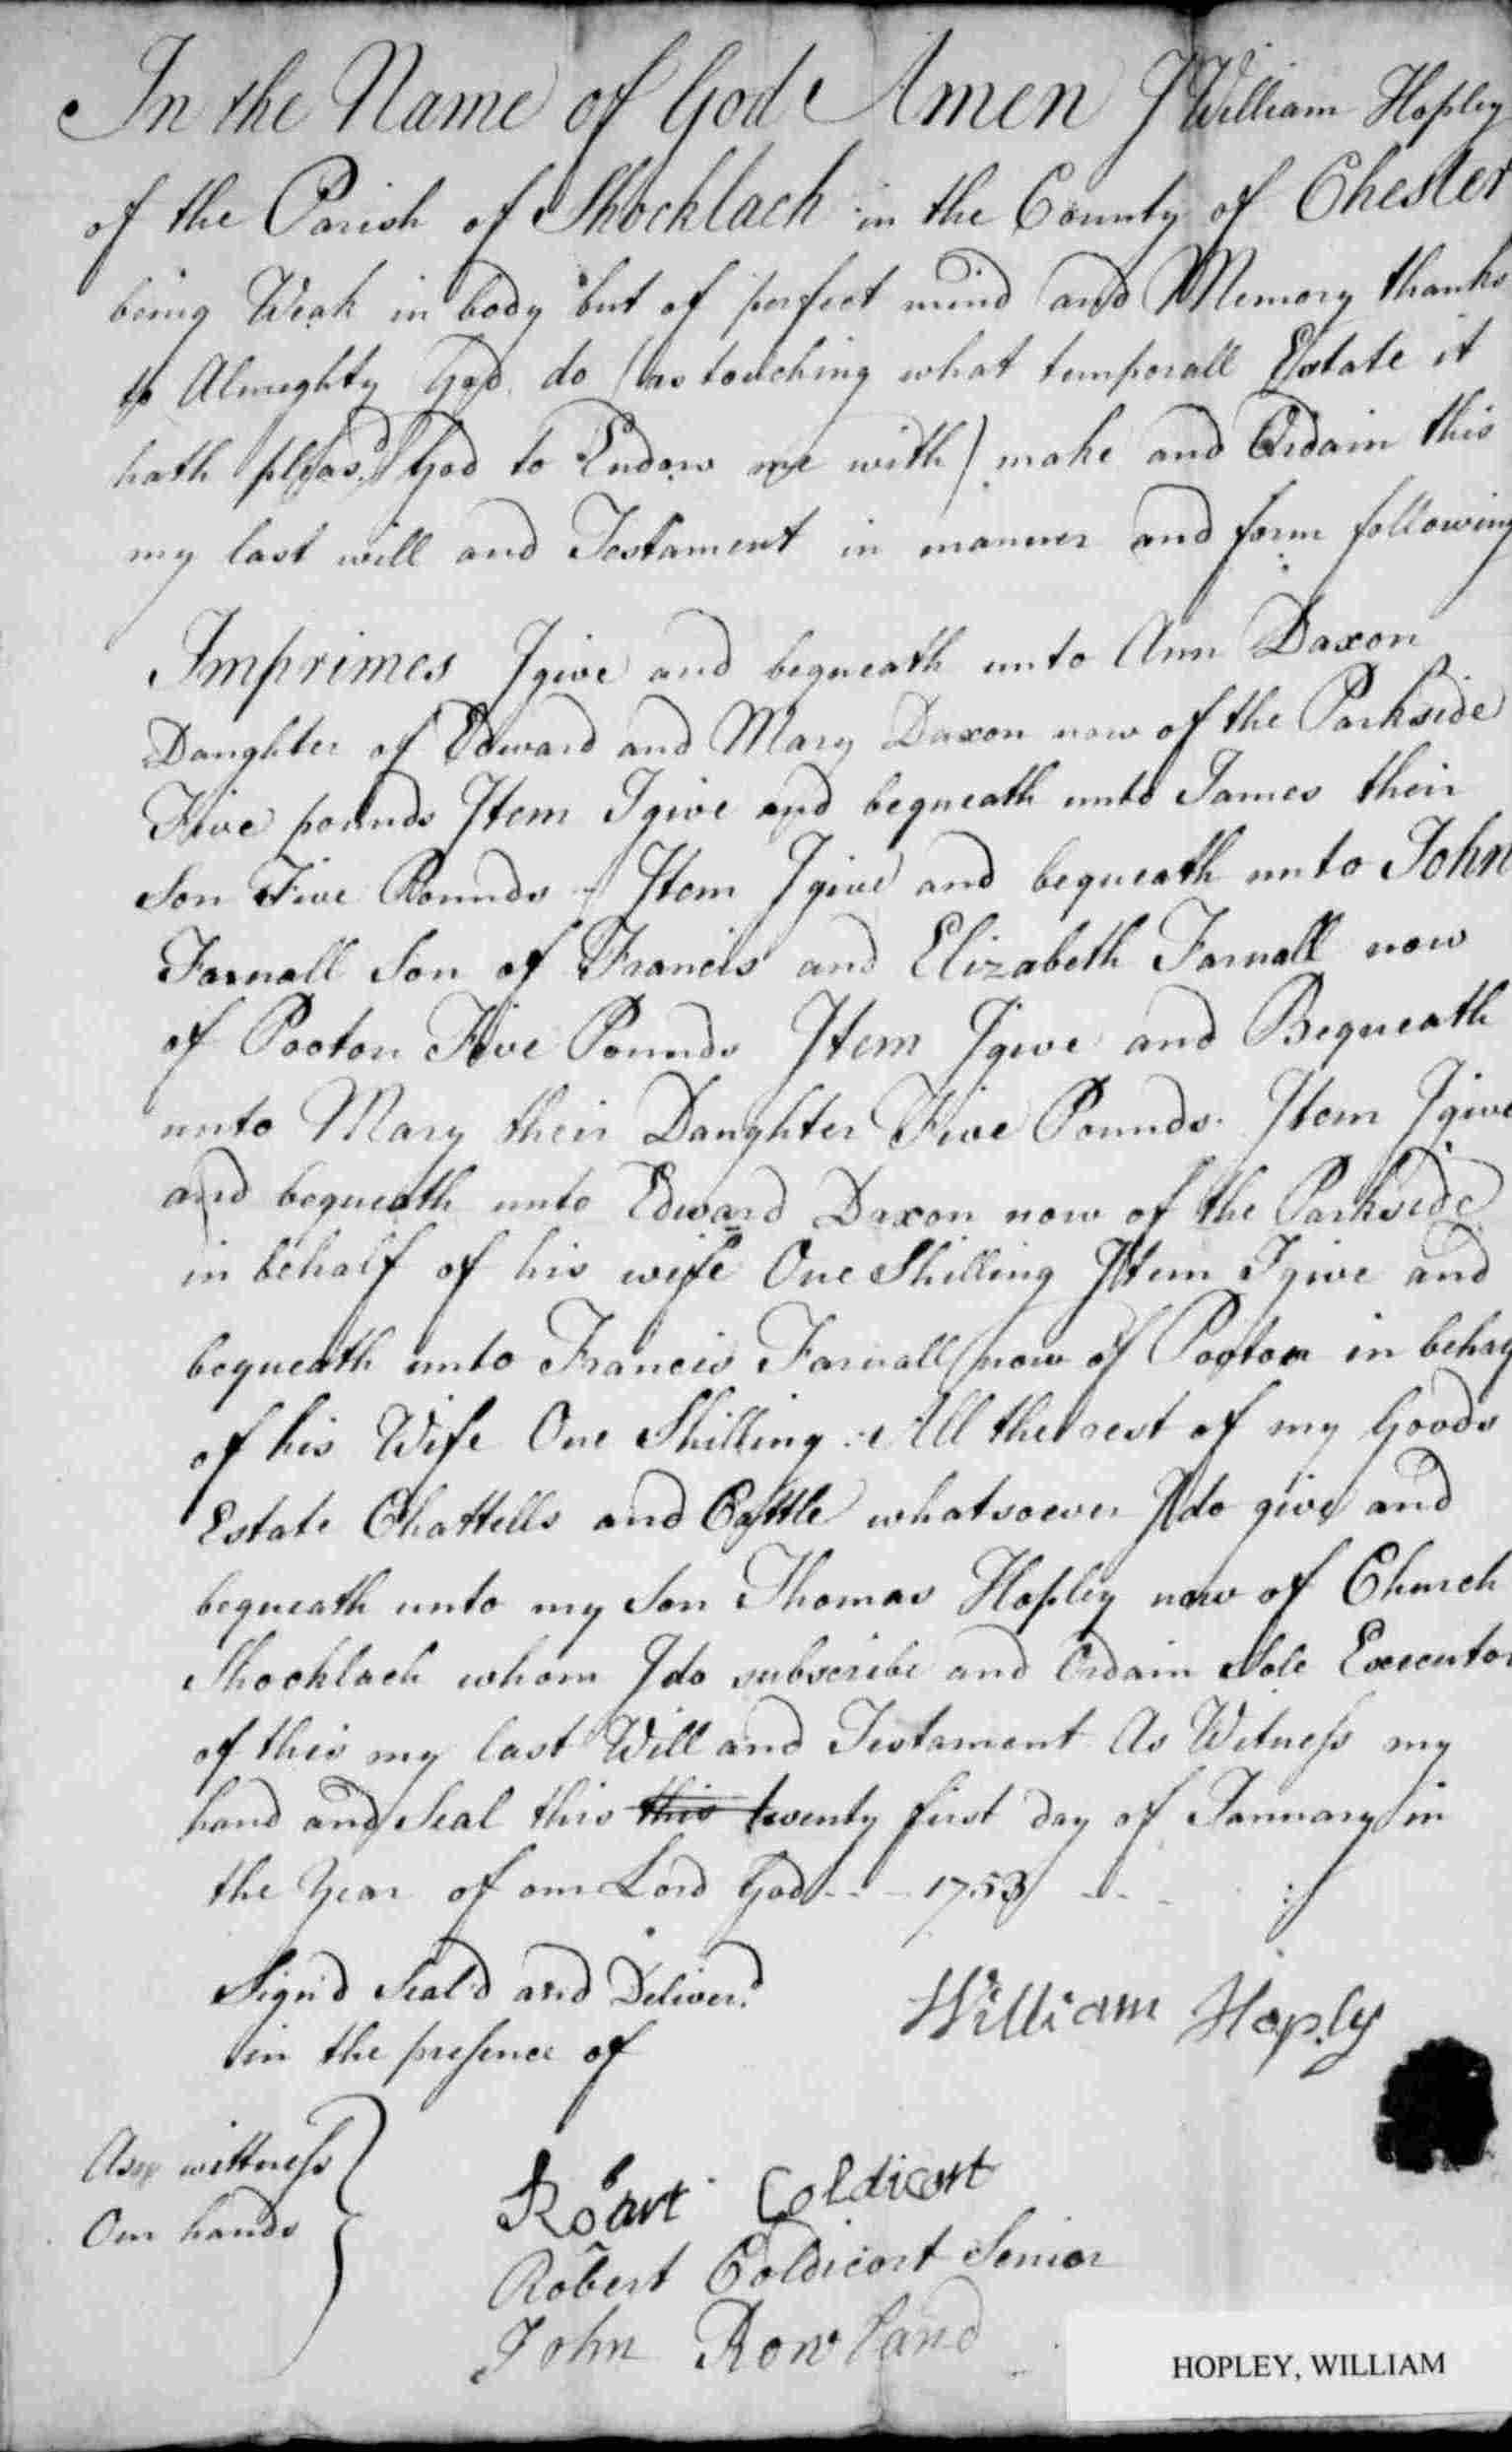 In the Name of God Amen I William Hopley
of the Parish of Shocklach in the County of Chester
being Weak in body but of perfect mind and Memory thanks
to Almighty God do (as touching what temporall Estate it
hath pleas'd God to Endow me with) make and Ordain this
my last will and Testament in manner and form following
Imprimes I give and bequeath unto Ann Daxon
Daughter of Edward and Mary Daxon now of the Parkside
Five pounds Item I give and bequeath unto James their
Son Five Pounds Item I give and bequeath unto John
Farnall Son of Francis and Elizabeth Farnall now
of Pooton Five Pounds Item I give and Bequeath
unto Mary their Daughter Five Pounds. Item I give
and bequeath unto Edward Daxon now of the Parkside
in behalf of his wife One Shilling Item I give and
bequeath unto Francis Farnall now of Pooton in behalf
of his Wife One Shilling. All the rest of my Goods
Estate Chattells and Cattle whatsoever I do give and
bequeath unto my Son Thomas Hopley now of Church
Shocklach whom I do subscribe and Ordain Sole Executor
of this my last Will and Testament As Witness my
hand and Seal this this twenty first day of January in
the Year of our Lord God - - - 1753 - - -
Sign'd Seal'd and Deliver'd
in the presence of
William Hoply
As wittness
Our hands
Robart Coldicott
Robert Coldicott Senior
John Rowland
HOPLEY, WILLIAM